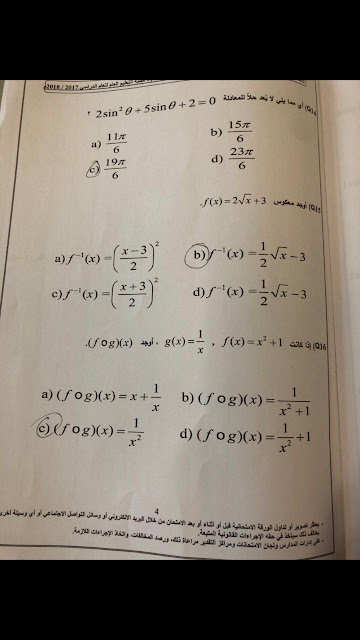 التعليم العام للعام الدراسي 2017 / 2018
Q14) أي مما يلي لا يُعد حلاً للمعادلة 2sin² θ + 5sin θ + 2 = 0 ؟
a) 11π/6 b) 15π/6
c) 19π/6 d) 23π/6
Q15) أوجد معكوس f(x) = 2√x + 3.
a) f⁻¹(x) = ((x − 3)/2)² b) f⁻¹(x) = 1/2 √x − 3
c) f⁻¹(x) = ((x + 3)/2)² d) f⁻¹(x) = 1/2 √x − 3
Q16) إذا كانت f(x) = x² + 1 , g(x) = 1/x ، أوجد (f o g)(x).
a) (f o g)(x) = x + 1/x b) (f o g)(x) = 1/(x² + 1)
c) (f o g)(x) = 1/x² d) (f o g)(x) = 1/x² + 1
4
- يحظر تصوير أو تداول الورقة الامتحانية قبل أو أثناء أو بعد الامتحان من خلال البريد الالكتروني أو وسائل التواصل الاجتماعي أو أي وسيلة أخرى
يخالف ذلك سيتخذ في حقه الإجراءات القانونية المتبعة.
- على إدارات المدارس ولجان الامتحانات ومراكز التقدير مراعاة ذلك، ورصد المخالفات، واتخاذ الإجراءات اللازمة.